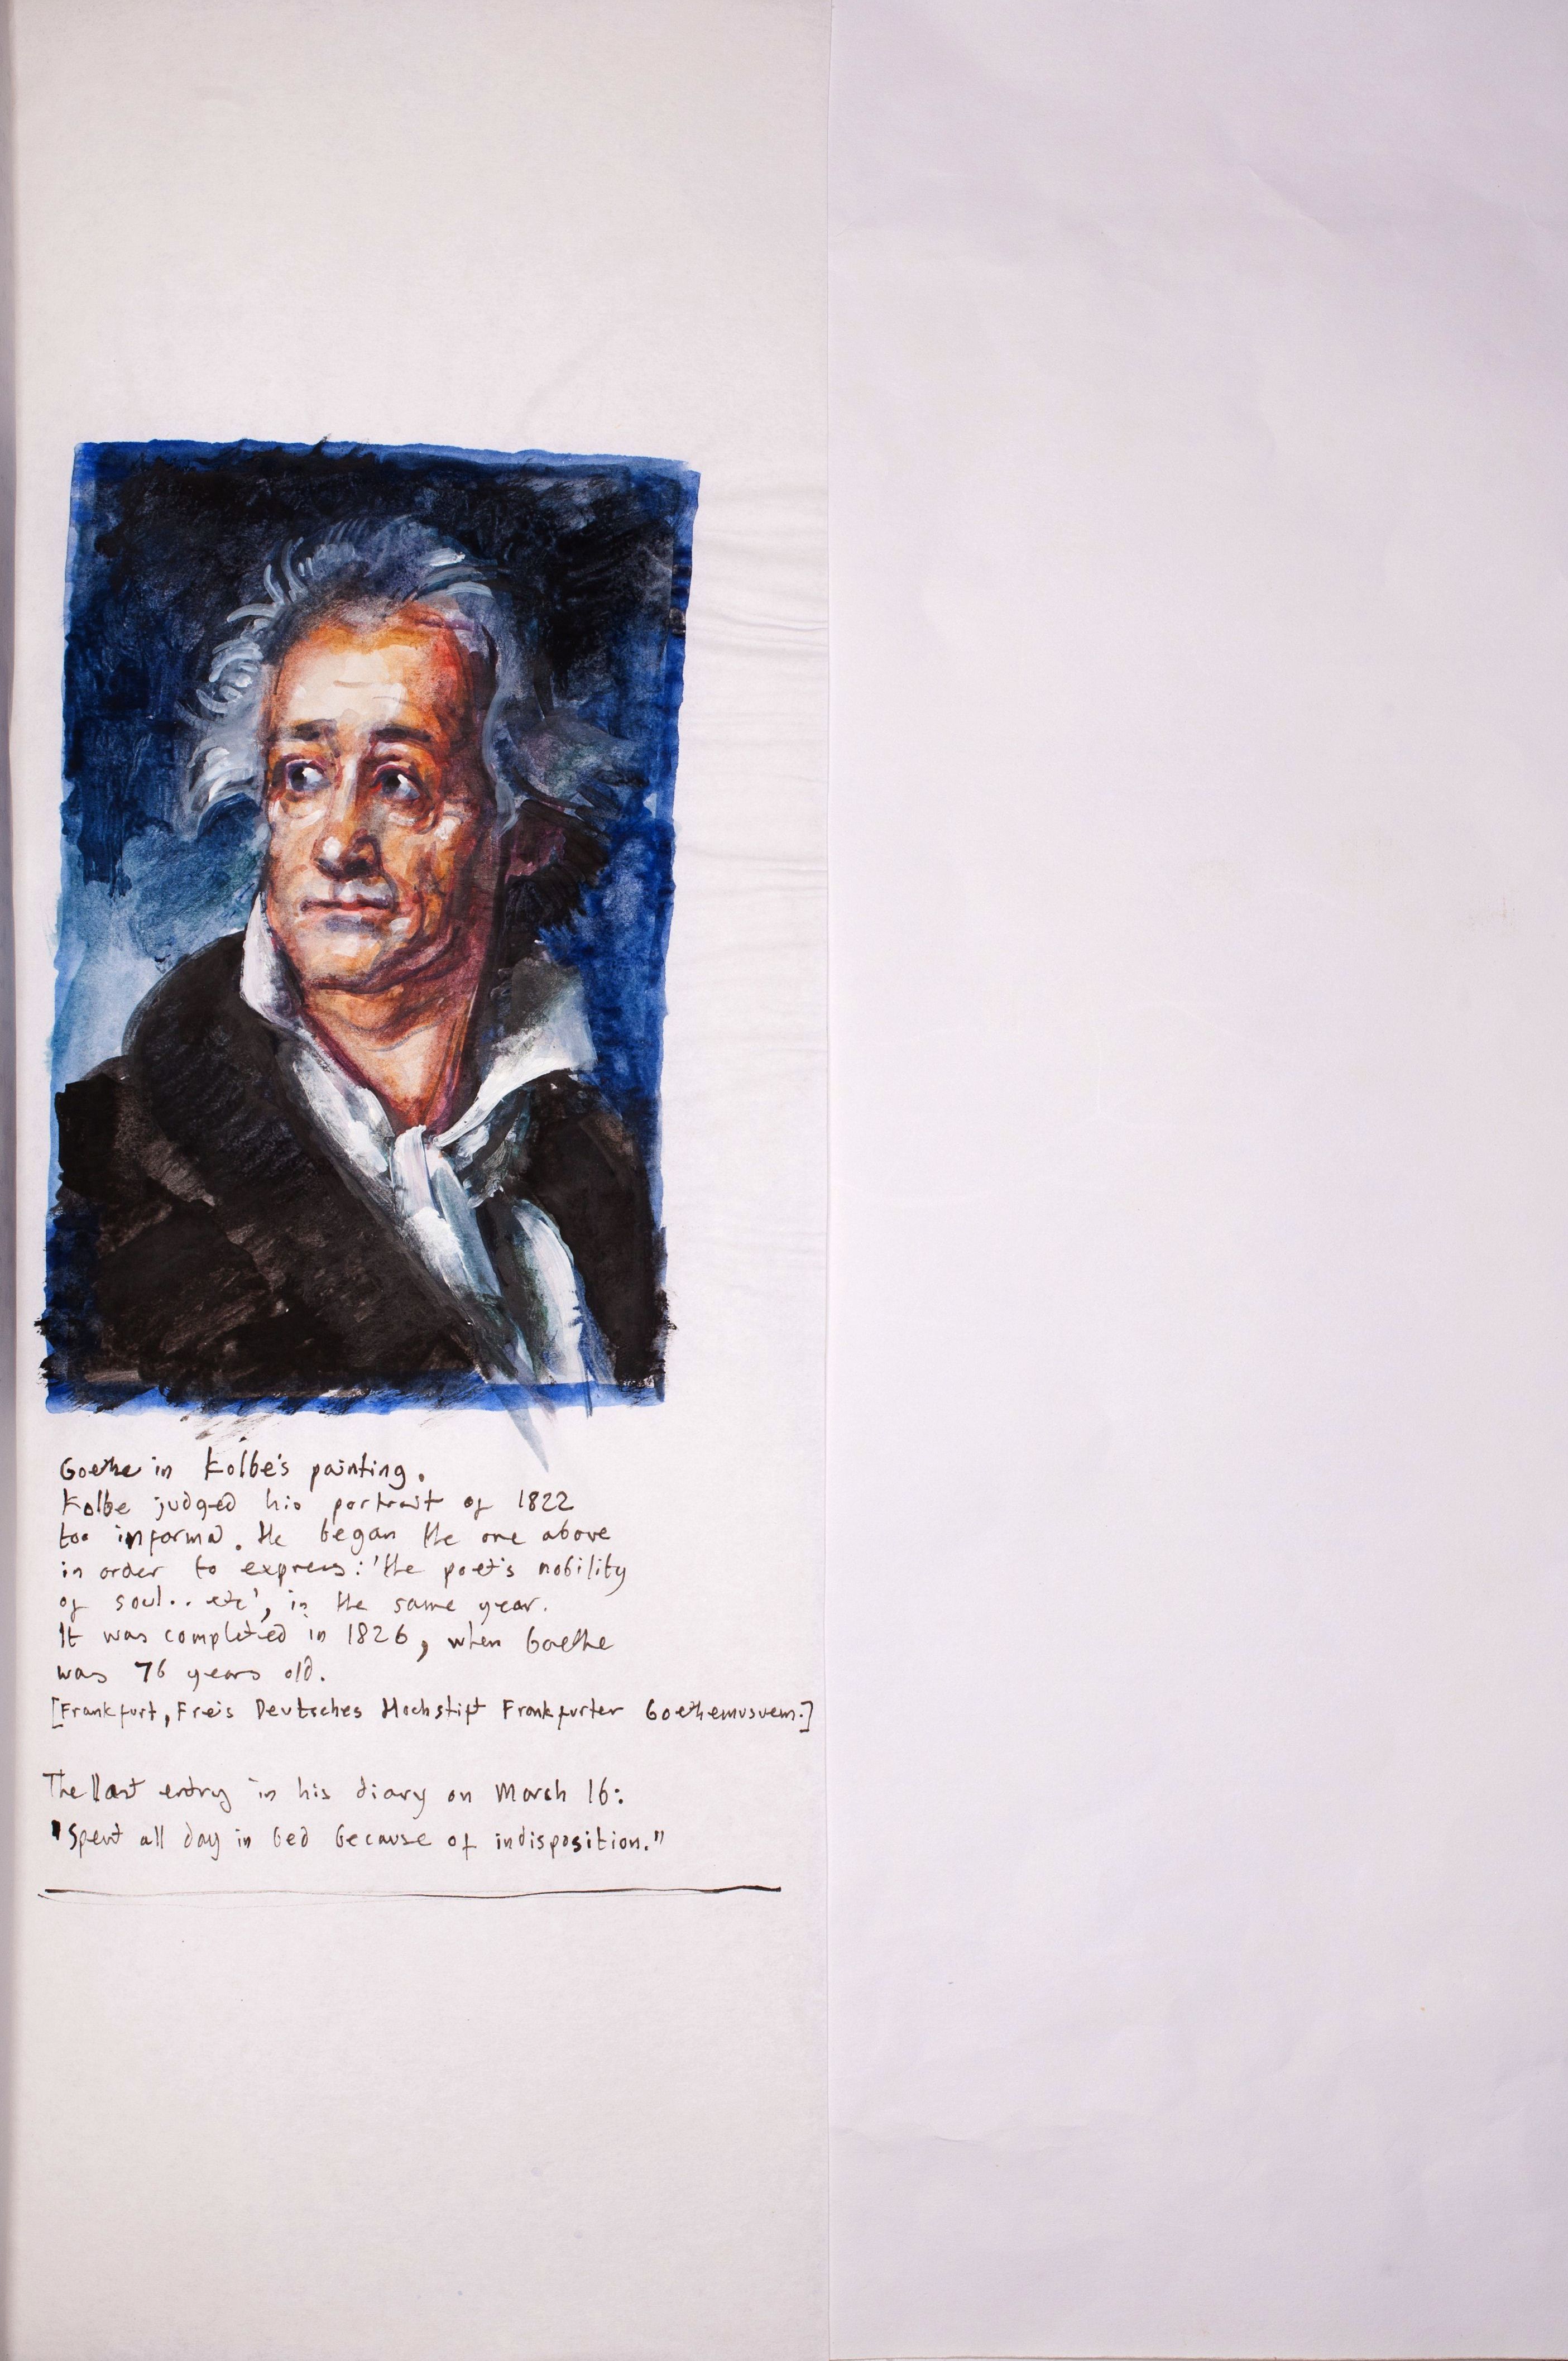 Goethe in Kolbe's painting.
Kolbe judged his portrait of 1822
too informal. He began the one above
in order to express: 'the poet's nobility
of soul.. etc', in the same year.
It was completed in 1826, when Goethe
was 76 years old.
[Frankfurt, Freis Deutsches Hochstift Frankfurter Goethemuseum.]
The last entry in his diary on March 16:
"Spent all day in bed because of indisposition."